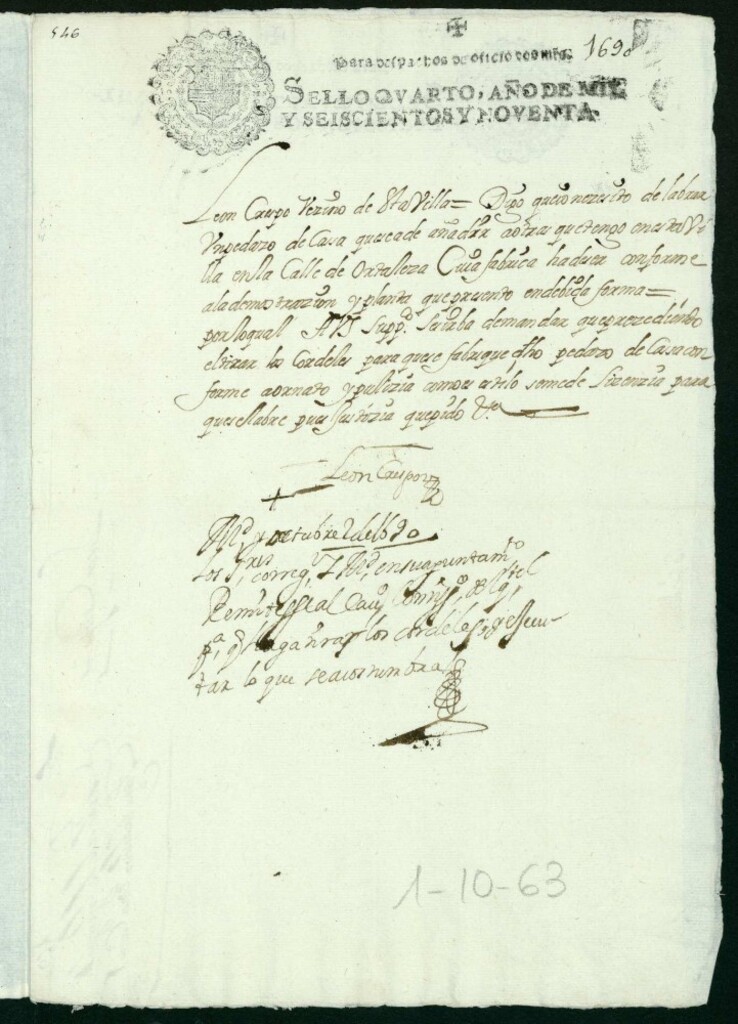 546
1690
Para despachos de oficio dos mrs.
SELLO QVARTO, AÑO DE MIL
Y SEISCIENTOS Y NOVENTA.
Leon Crespo Vezino de esta Villa = Digo que io nezesito de labrar
Un pedazo de Casa que se a de añadir a otras que tengo en esta Vi
lla en la Calle de Ortaleza Cuia fabrica ha de ser conforme
a la demostrazion y planta que presento en debida forma =
por lo qual A VS Suppco se sirba de mandar que prezediendo
el tirar los Cordeles para que se fabrique dho pedazo de Casa con
forme a ornato y pulizia como es estilo se me de Lizenzia para
que se labre pues es Justizia que pido &a
Leon Crespo
Md y octubre 2 de 1690
Los Sres correg, Y Md, en su ayuntamto
Remitese al Cauo Comisso, del qtel
pa, q haga tirar los cordeles y exsecu
tar lo que se acostumbra
1-10-63